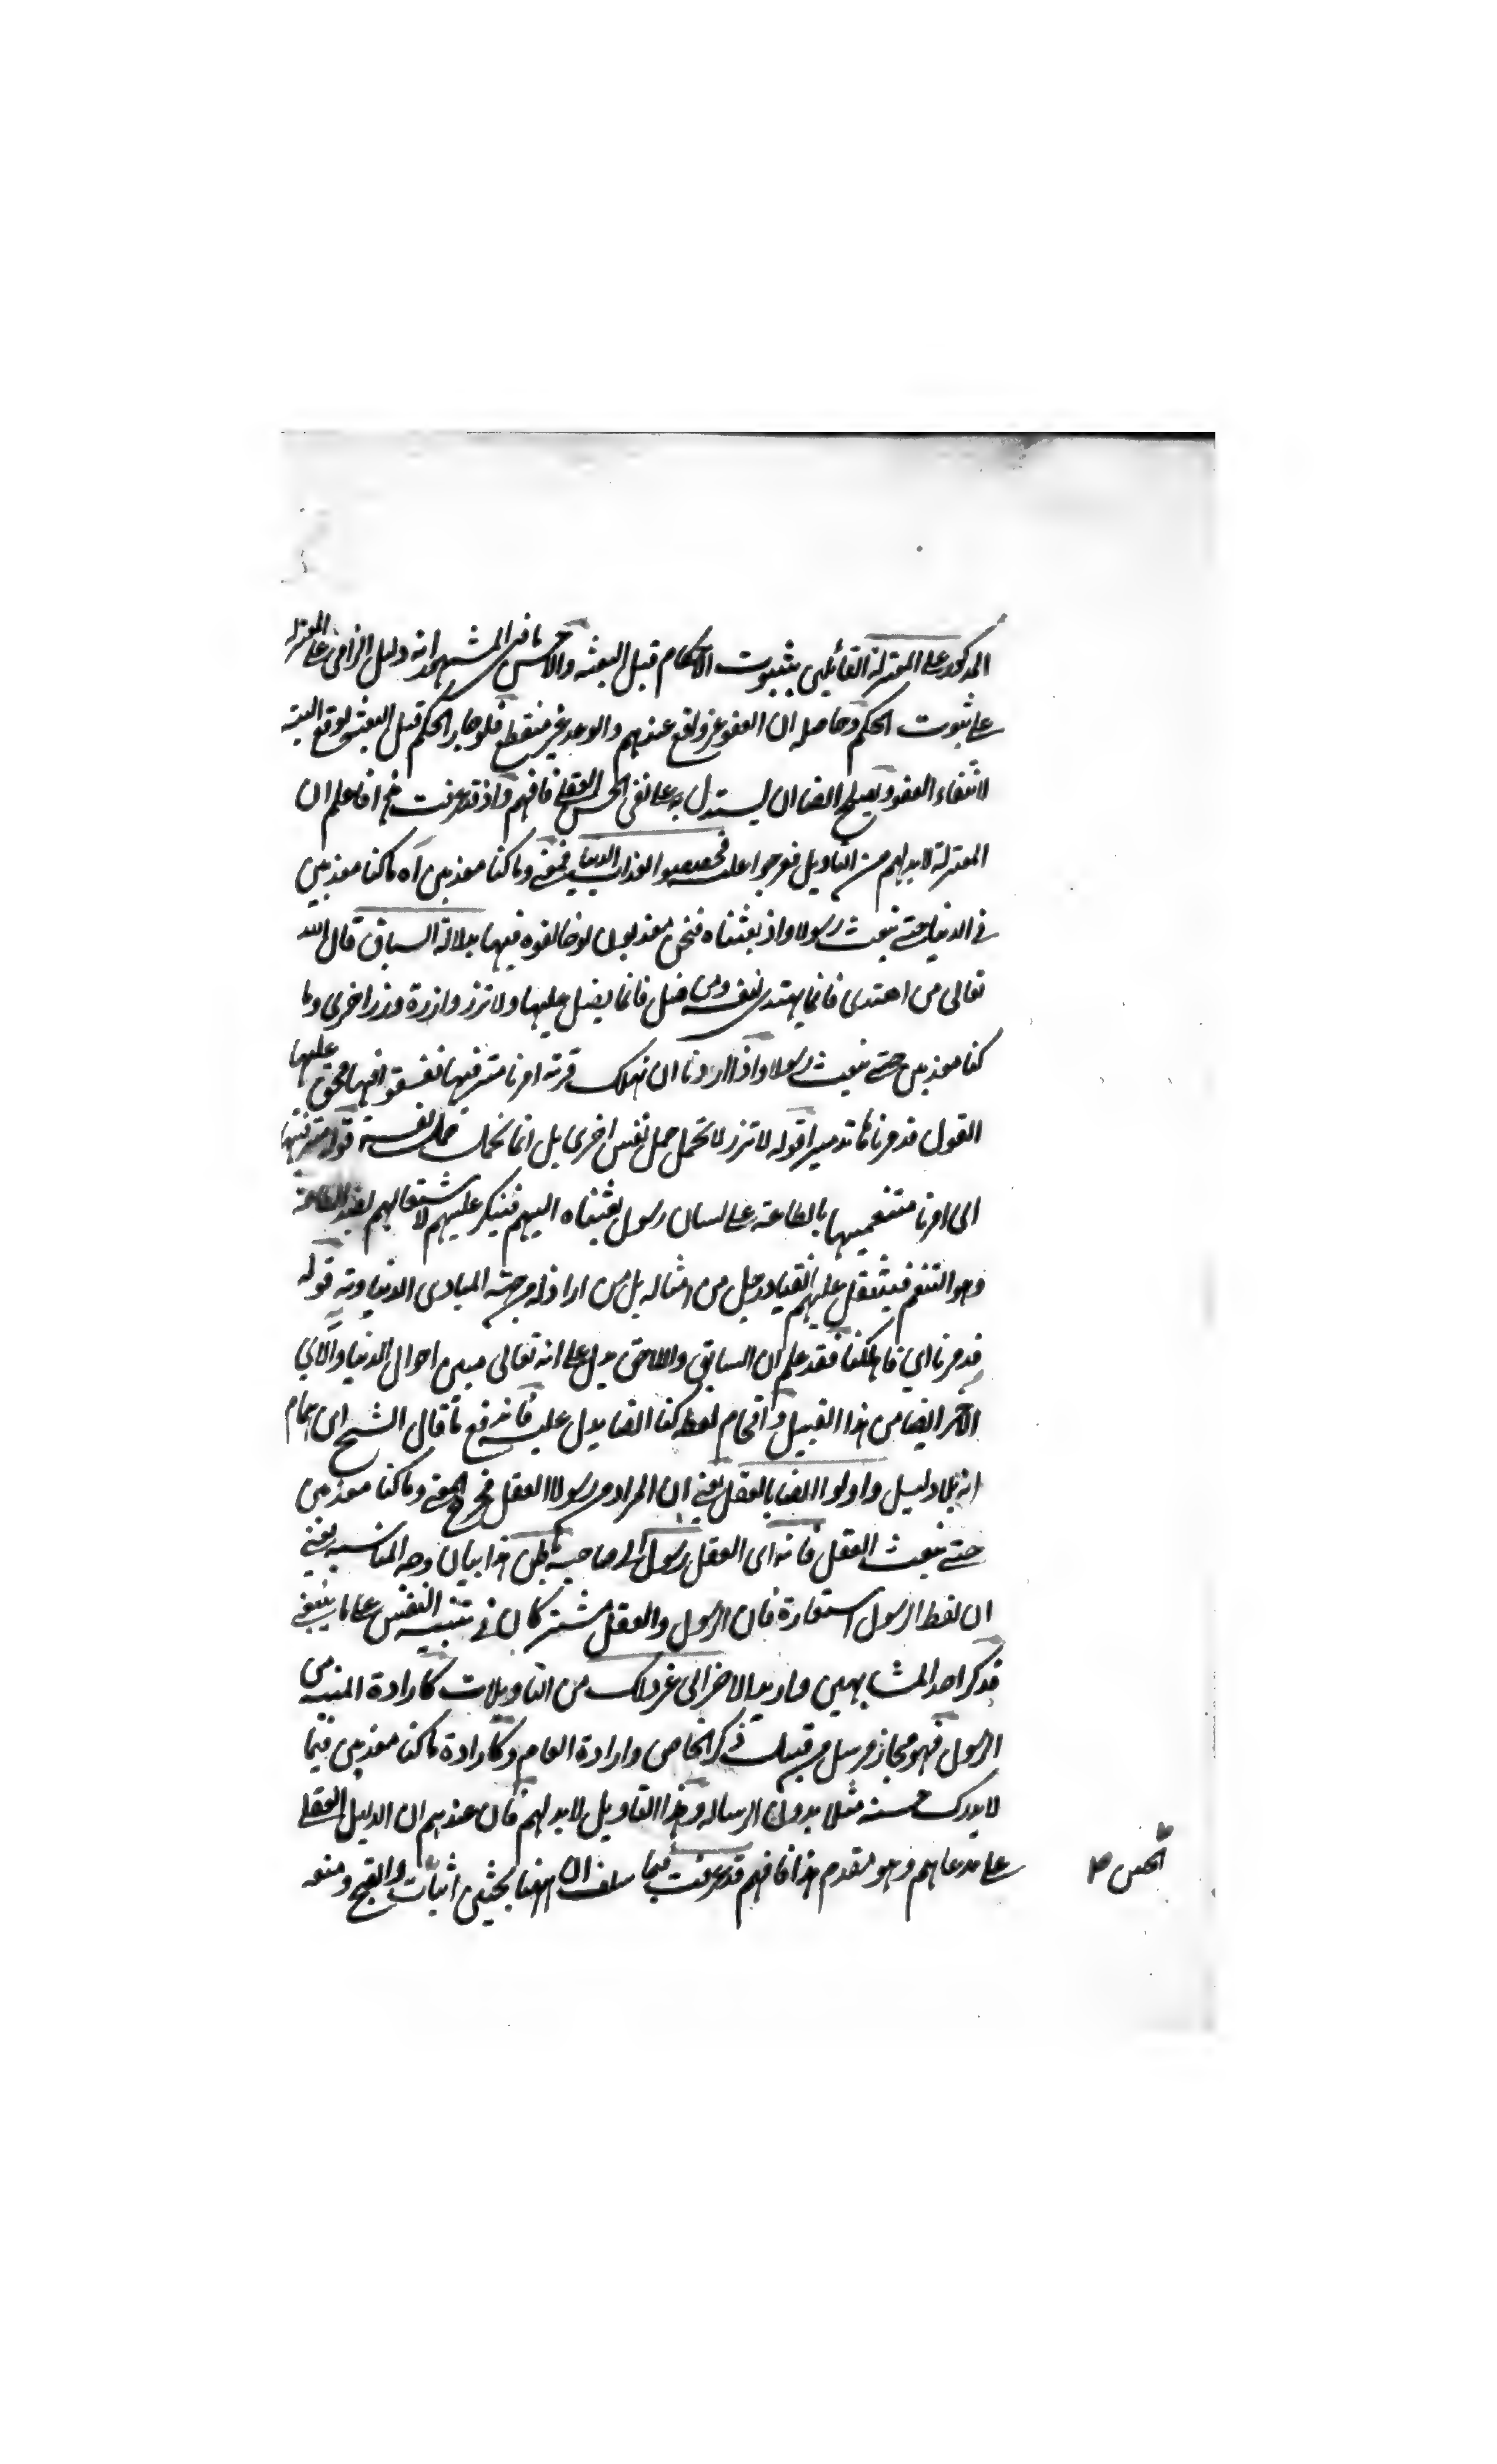 المذكور على المعتزلة القائلين بثبوت الاحكام قبل البعثة والاحسن ما فى المشهور انه دليل الزامى على المعتزلة
على ثبوت الحكم وحاصله ان العفو غير واقع عندهم والوعد غير منقطع فلو جاز الحكم قبل البعثة لوقع البتة
لانتفاء العفو ويصلح ايضا ان يستدل به على نفى الحسن العقلى فافهم واذ قد عرفت هذا فاعلم ان
المعتزلة لا بد لهم من التاويل فعرجوا عليه فخصصوا العذاب الدنيا فمعنى وما كنا معذبين اه ما كنا معذبين
فى الدنيا حتى نبعث رسولا واذ بعثناه فنحن معذبون لو خالفوه فيها بدلالة السباق قال الله
تعالى من اهتدى فانما يهتدى لنفسه ومن ضل فانما يضل عليها ولا تزر وازرة وزر اخرى وما
كنا معذبين حتى نبعث رسولا واذا اردنا ان نهلك قرية امرنا مترفيها ففسقوا فيها فحق عليها
القول فدمرناها تدميرا قوله لا تزر لا تحمل حمل نفس اخرى بل انما تحمل حمل نفسه قوله مترفيها
اى امرنا متنعميها بالطاعة على لسان رسول بعثناه اليهم فينكر عليهم لاشتغالهم بضد الطاعة
وهو التنعم فيثقل عليهم انقياد رجل من امثاله بل من اراذله من جهة المبادى الدنياوية قوله
فدمرنا اى فاهلكنا فقد علم ان السابق واللاحق يدل على انه تعالى مبين احوال الدنيا والاتى
الاخر ايضا من هذا القبيل واقحام لفظ كنا ايضا يدل عليه فاندفع ما قال الشيخ ابن همام
انه بلا دليل واولوا ايضا بالعقل يعنى ان المراد من رسولا العقل فمعنى وما كنا معذبين
حتى نبعث العقل فانه اى العقل رسول الى صاحبه باطن هذا بيان وجه المناسبة يعنى
ان لفظ الرسول استعارة فان الرسول والعقل مشتركان فى تنبيه النفس على ما ينبغى
فذكر احد المشابهين واريد الاخر الى غير ذلك من التاويلات كارادة المنبه من
الرسول فهو مجاز مرسل من قبيل ذكر الخاص وارادة العام وكارادة ما كنا معذبين فيما
لا يدرك حسنه مثلا بدون الرسالة وهذا التاويل لا بد لهم فان عندهم ان الدليل العقلى
على مدعاهم وهو مقدم هذا فافهم قد عرفت فيما سلف ان ههنا بحثين اثبات والقبح ومنعه
الحسن ص